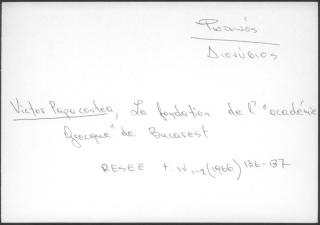 Φωτεινός
Διονύσιος
Victor Papacostea, La fondation de l' "académie
Grecque" de Bucarest
RESEE t. IV 1-2 (1966) 136-137